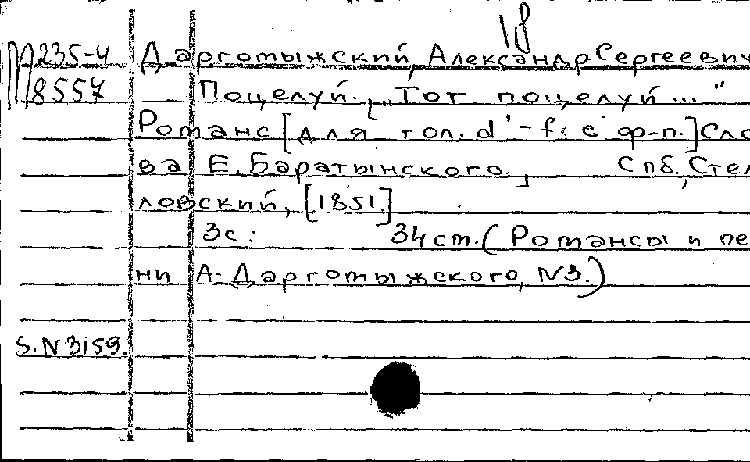 18
М235-4 Даргомыжский, Александр Сергеевич
8557 Поцелуй. „Тот поцелуй..."
Романс [для гол. d'-fis с ф-п.] Сло
ва Е. Баратынского, Спб, Стел
ловский, [1851.]
3с. 34 cm. (Романсы и пе
ни А. Даргомыжского, N3.)
S.N 3159.